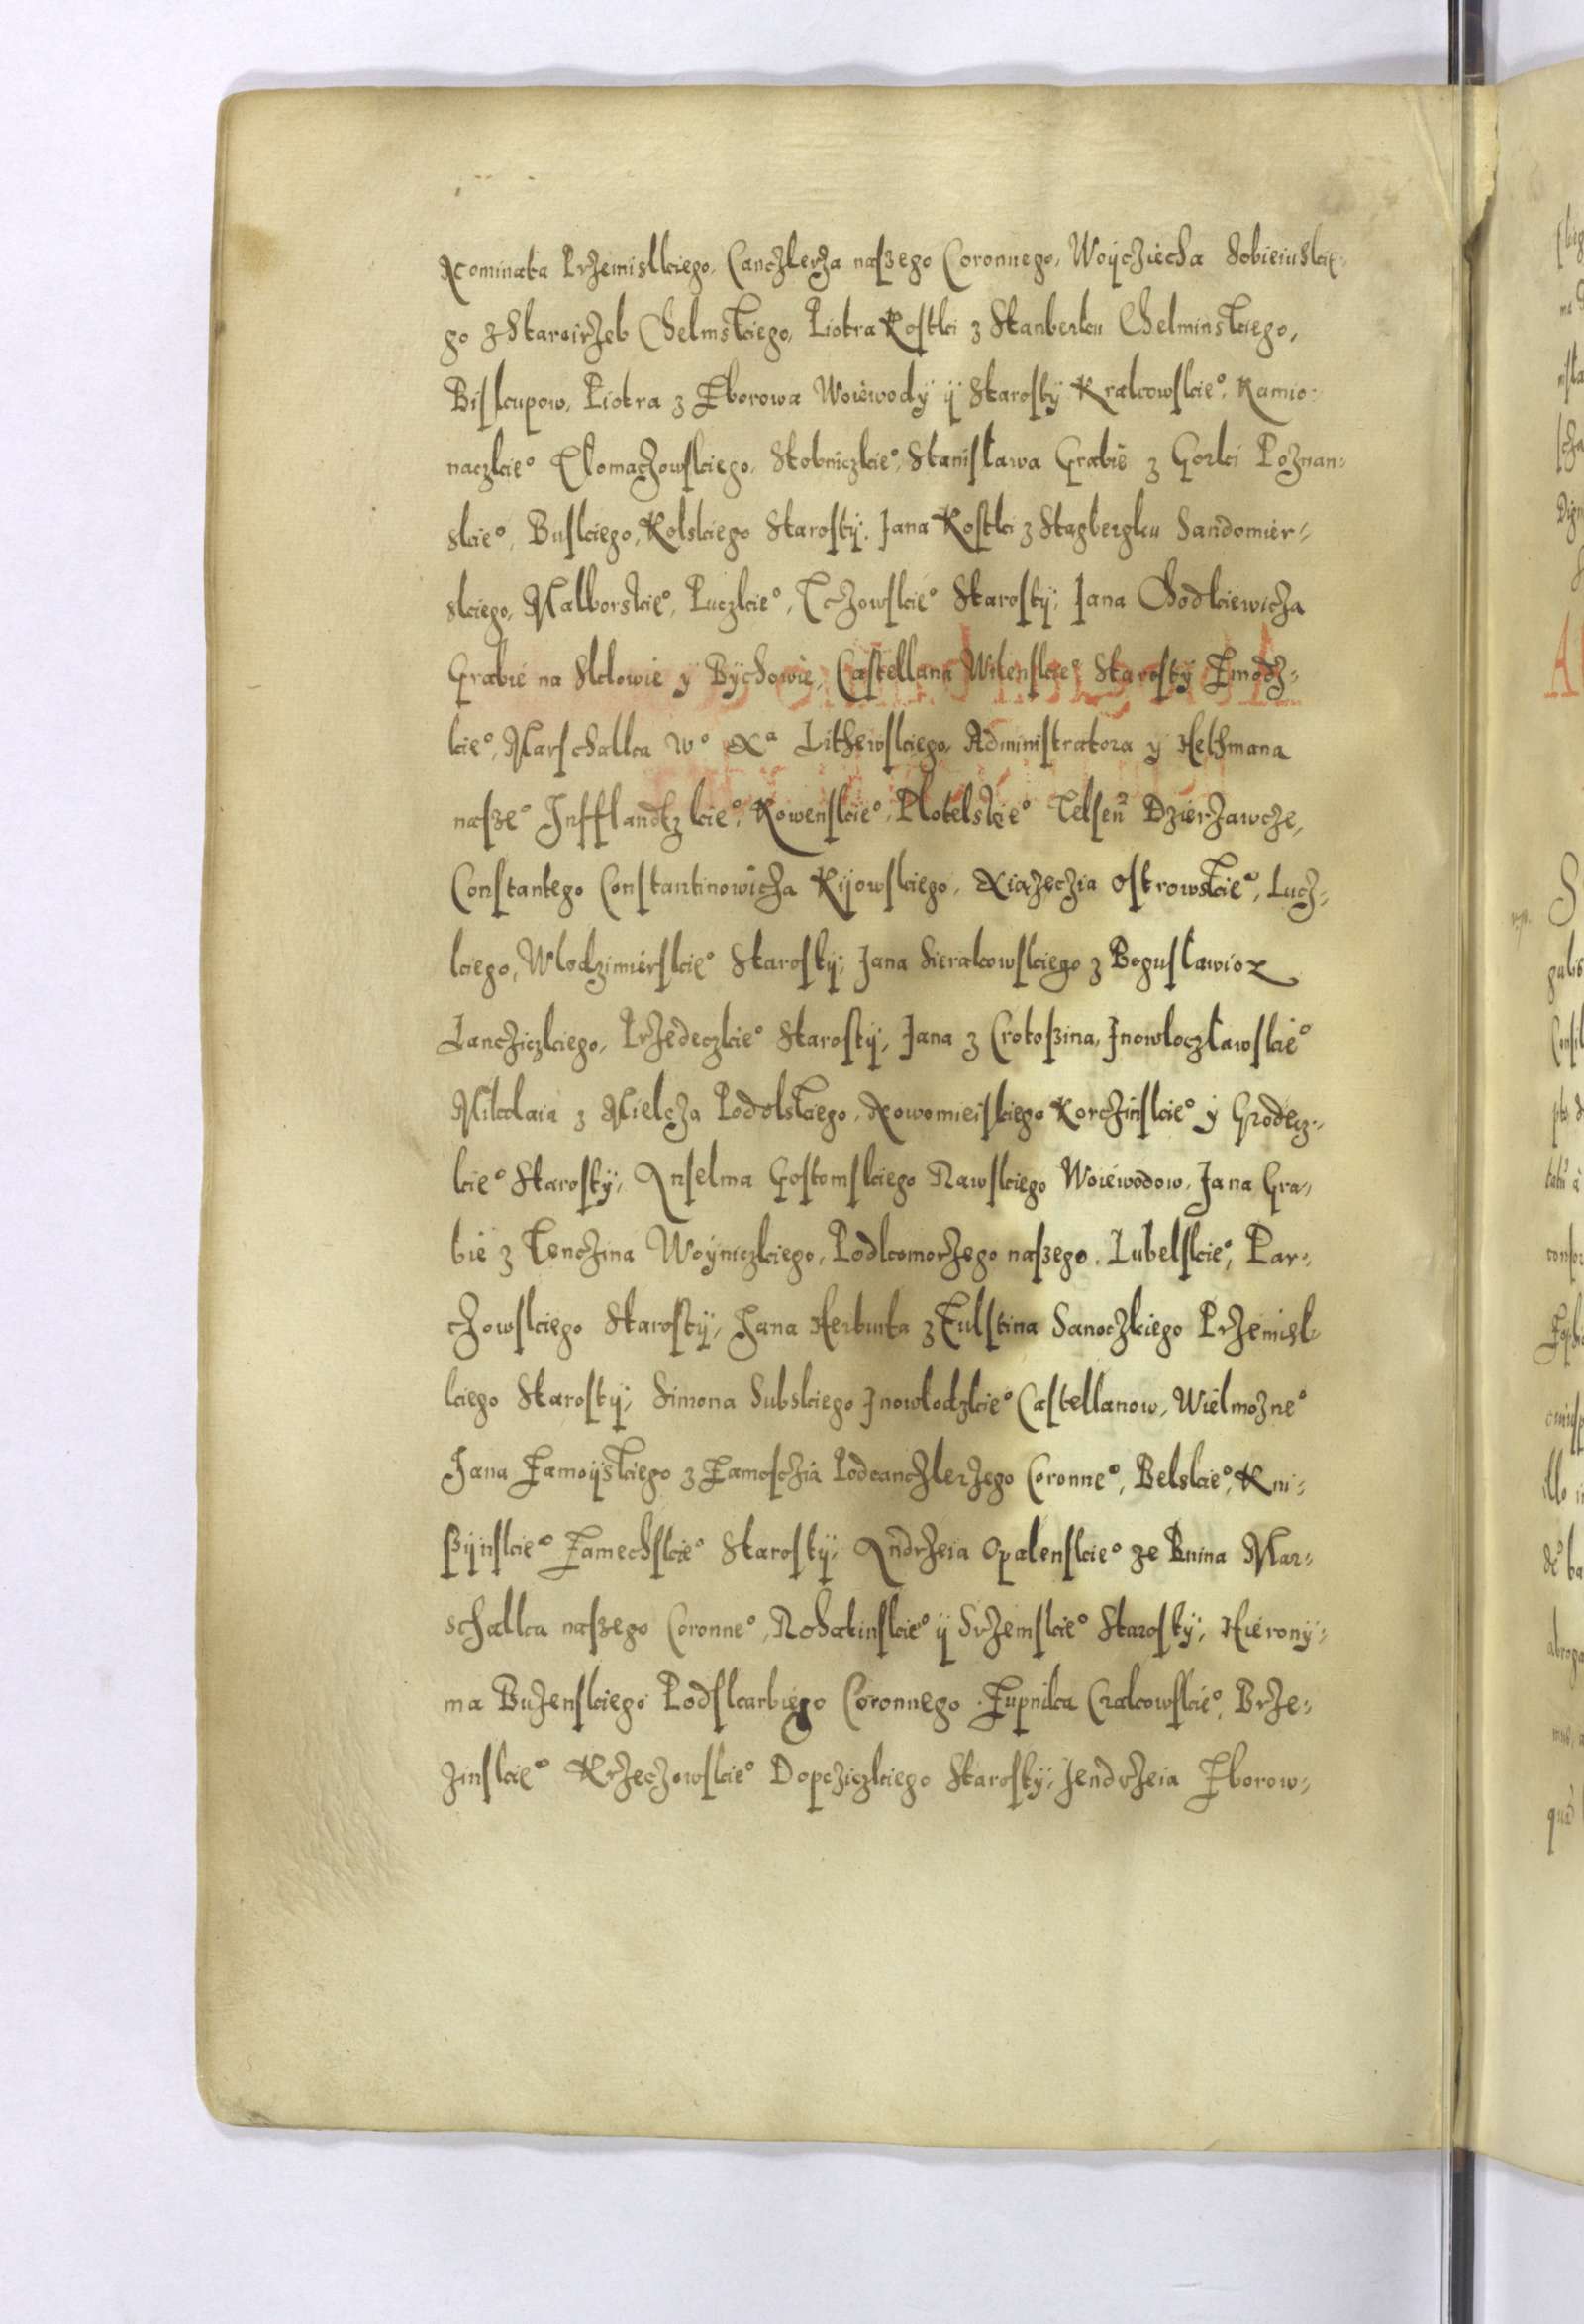 Nominata Przemislkiego, Canczlerza naszego Coronnego, Woyczięcha Sobieiuskie-
go z Staroirzeb Chelmskiego, Piotra Kostki z Stanberku Chelminskiego,
Biskupow, Piotra z Zborowa Woiewody ÿ Starosty Krakowskie°, Kamio-
naczkie° Tlomaczowskiego, Stobniczkie°, Stanisława Grabie z Gorki Poznan-
skie°, Buskiego, Kolskiego Starosty, Jana Kostki z Stagbergku Sandomier-
skiego, Malborskie°, Puczkie°, Tczowskie° Starosty, Jana Chodkiewicza
Grabie na Sklowie y Bychowie, Castellana Wilenskie° Starosty Zmodz-
kie°, Marschalka W° Xa Lithewskiego, Administratora y Hethmana
nasze° Jnfflandtzkie°, Kowenskie°, Plotelskie° Telsen Dzierzawcze,
Constantego Constantinowicza Kijowskiego, Xiążeczia Ostrowskie°, Lucz-
kiego, Wlodzimierskie° Starosty, Jana Sierakowskiego z Bogusławicz
Lancziczkiego, Przedeczkie° Starosty, Jana z Crotoszina, Jnowłoczławskie°
Mikolaia z Mielcza Podolskiego, Nowomieiskiego Korczinskie° y Grodecz-
kie° Starosty, Anselma Gostomskiego Rawskiego Woiewodow, Jana Gra-
bie z Tenczina Woyniczkiego, Podkomorzego naszego, Lubelskie°, Par-
czowskiego Starosty, Jana Herburta z Fulstina Sanoczkiego Przemisl-
kiego Starosty, Simona Subskiego Jnowłodzkie° Castellanow, Wielmozne°
Jana Zamoyskiego z Zamosczia Podcanczlerzego Coronne°, Belskie°, Kni-
szÿnskie° Zamechskie° Starosty, Andrzeia Opalenskie° ze Bnina Mar-
schalka naszego Coronne°, Rohatinskie° ÿ Srzemskie° Starosty, Hierony-
ma Buzenskiego Podskarbiego Coronnego Zupnika Crakowskie°, Brze-
zinskie° Krzeczowskie° Dopcziczkiego Starosty, Jendrzeia Zborow-